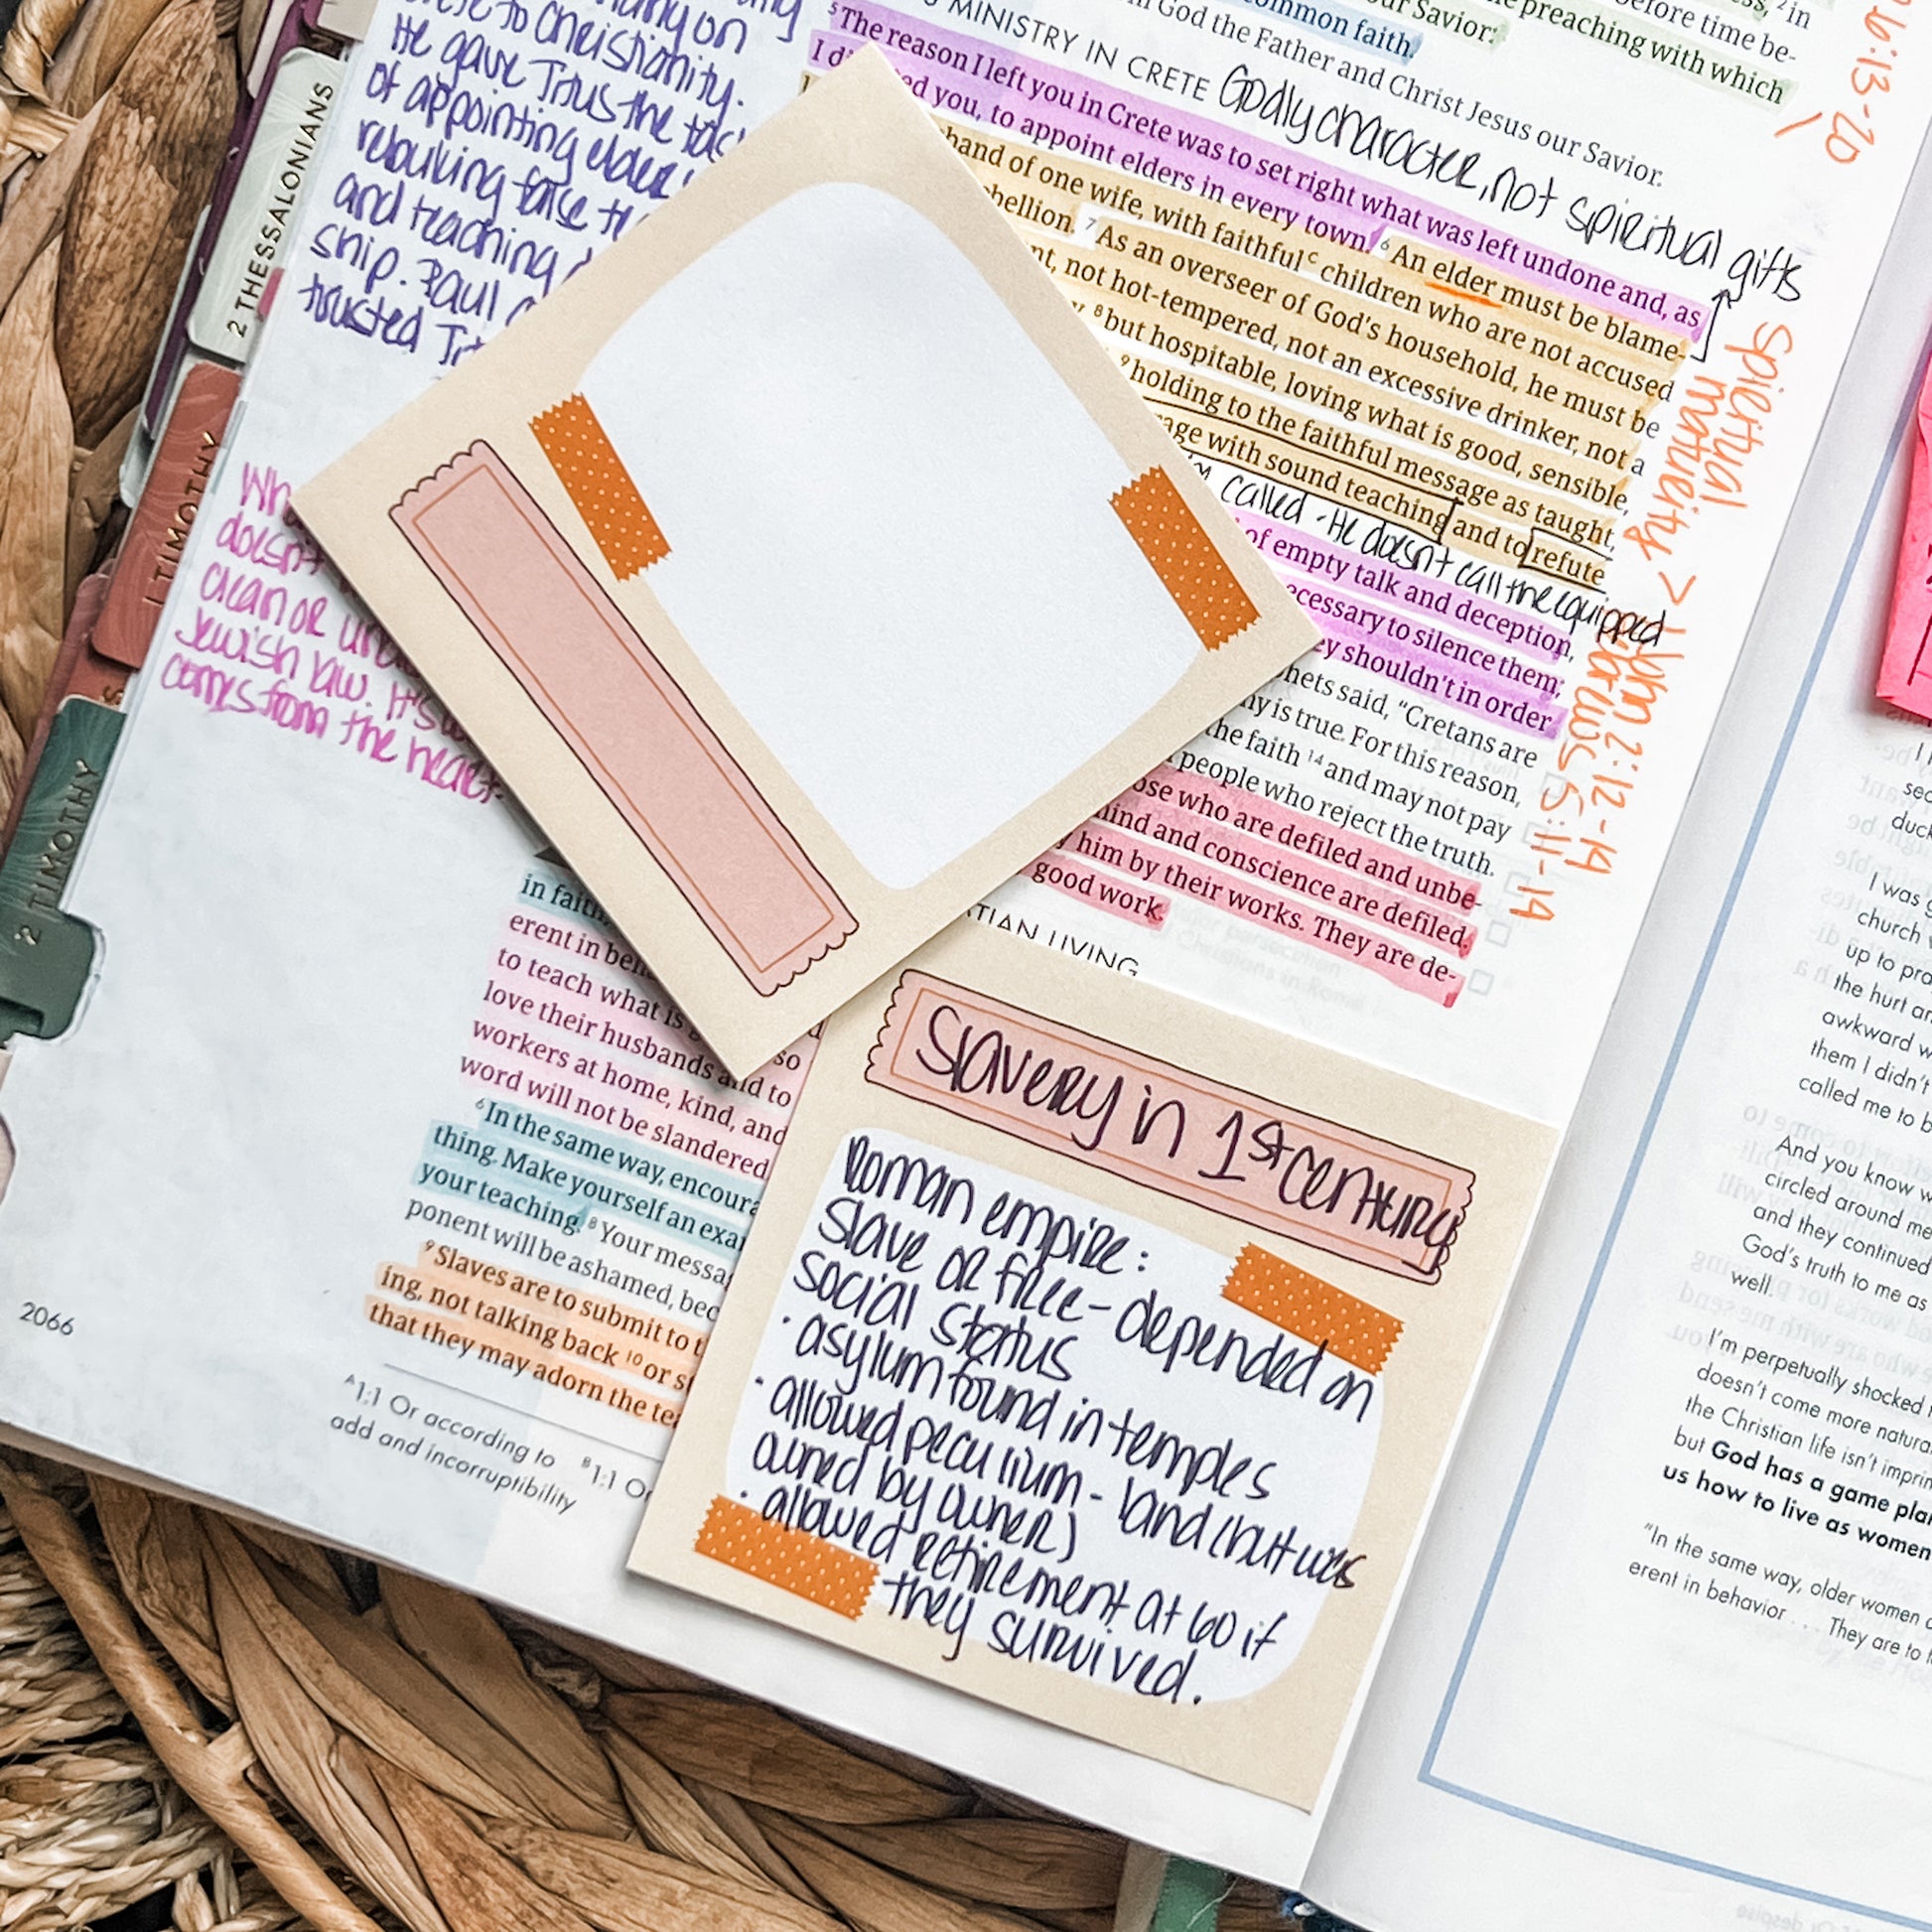 to Christianity.
He gave Titus the
of appointing elders
rebuking false
and teaching
ship. Paul
trusted
doesn't
clean or
Jewish law. It's
comes from the heart.
2 THESSALONIANS
1 TIMOTHY
2 TIMOTHY
in
before time be-
the preaching with which
our Savior:
common faith.
God the Father and Christ Jesus our Savior.
MINISTRY IN CRETE
Godly character, not spiritual gifts
5 The reason I left you in Crete was to set right what was left undone and, as
I you, to appoint elders in every town. 6 An elder must be blame-
of one wife, with faithful c children who are not accused
7 As an overseer of God's household, he must be
not hot-tempered, not an excessive drinker, not a
8 but hospitable, loving what is good, sensible,
9 holding to the faithful message as taught,
with sound teaching and to refute
called - He doesn't call the equipped
of empty talk and deception,
necessary to silence them;
they shouldn't in order
said, "Cretans are
is true. For this reason,
the faith 14 and may not pay
people who reject the truth.
who are defiled and unbe-
mind and conscience are defiled.
him by their works. They are de-
good work.
6:13-20
Spiritual
maturity >
1 John 2:12-14
Hebrews 5:11-14
LIVING
in
erent in
to teach what is
so
love their husbands and to
workers at home, kind, and
word will not be slandered
6 In the same way,
thing. Make yourself an
your teaching. 8 Your
ponent will be ashamed,
9 Slaves are to submit to
ing, not talking back 10 or
that they may adorn the
2066
A 1:1 Or according to B 1:1
add and incorruptibility
Slavery in 1st century
Roman empire:
slave or free - depended on
social status
· asylum found in temples
· allowed peculium - land (but was
owned by owner)
· allowed retirement at 60 if
they survived.
I was
church
up to
the hurt
awkward
them I didn't
called me to
And you know
circled around me
and they continued
God's truth to me as
well.
I'm perpetually shocked
doesn't come more
the Christian life isn't
but God has a game
us how to live as women
"In the same way, older women
erent in behavior . . . They are to